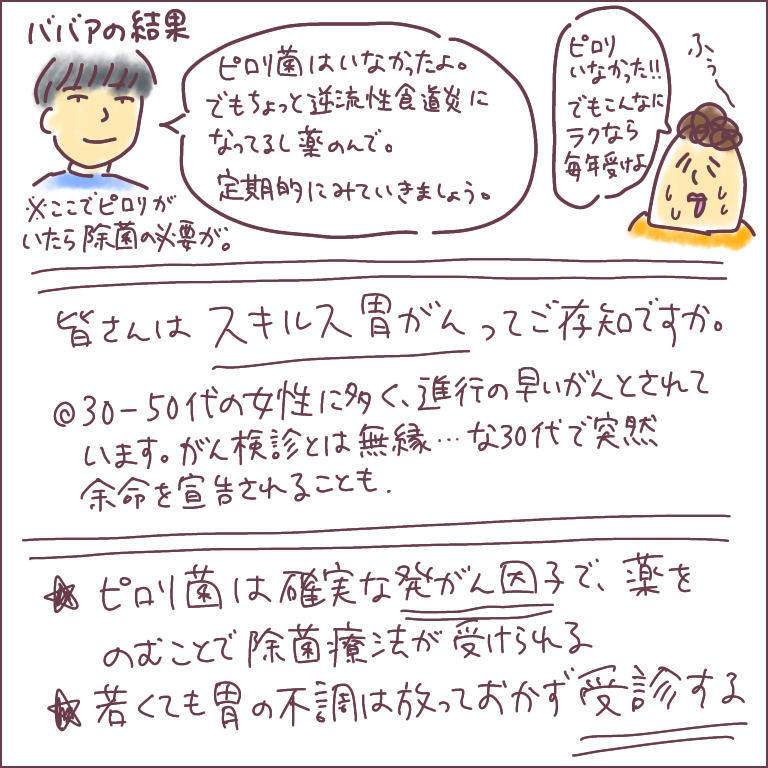 ババアの結果
ピロリ菌はいなかったよ。
でもちょっと逆流性食道炎に
なってるし薬のんで。
定期的にみていきましょう。
ピロリ
いなかった!!
でもこんなに
ラクなら
毎年受けよ
ふぅ〜
※ここでピロリが
いたら除菌の必要が。
皆さんは スキルス胃がん ってご存知ですか。
◎30-50代の女性に多く、進行の早いがんとされて
います。がん検診とは無縁…な30代で突然
余命を宣告されることも.
★ ピロリ菌は確実な発がん因子で、薬を
のむことで除菌療法が受けられる
★ 若くても胃の不調は放っておかず受診する